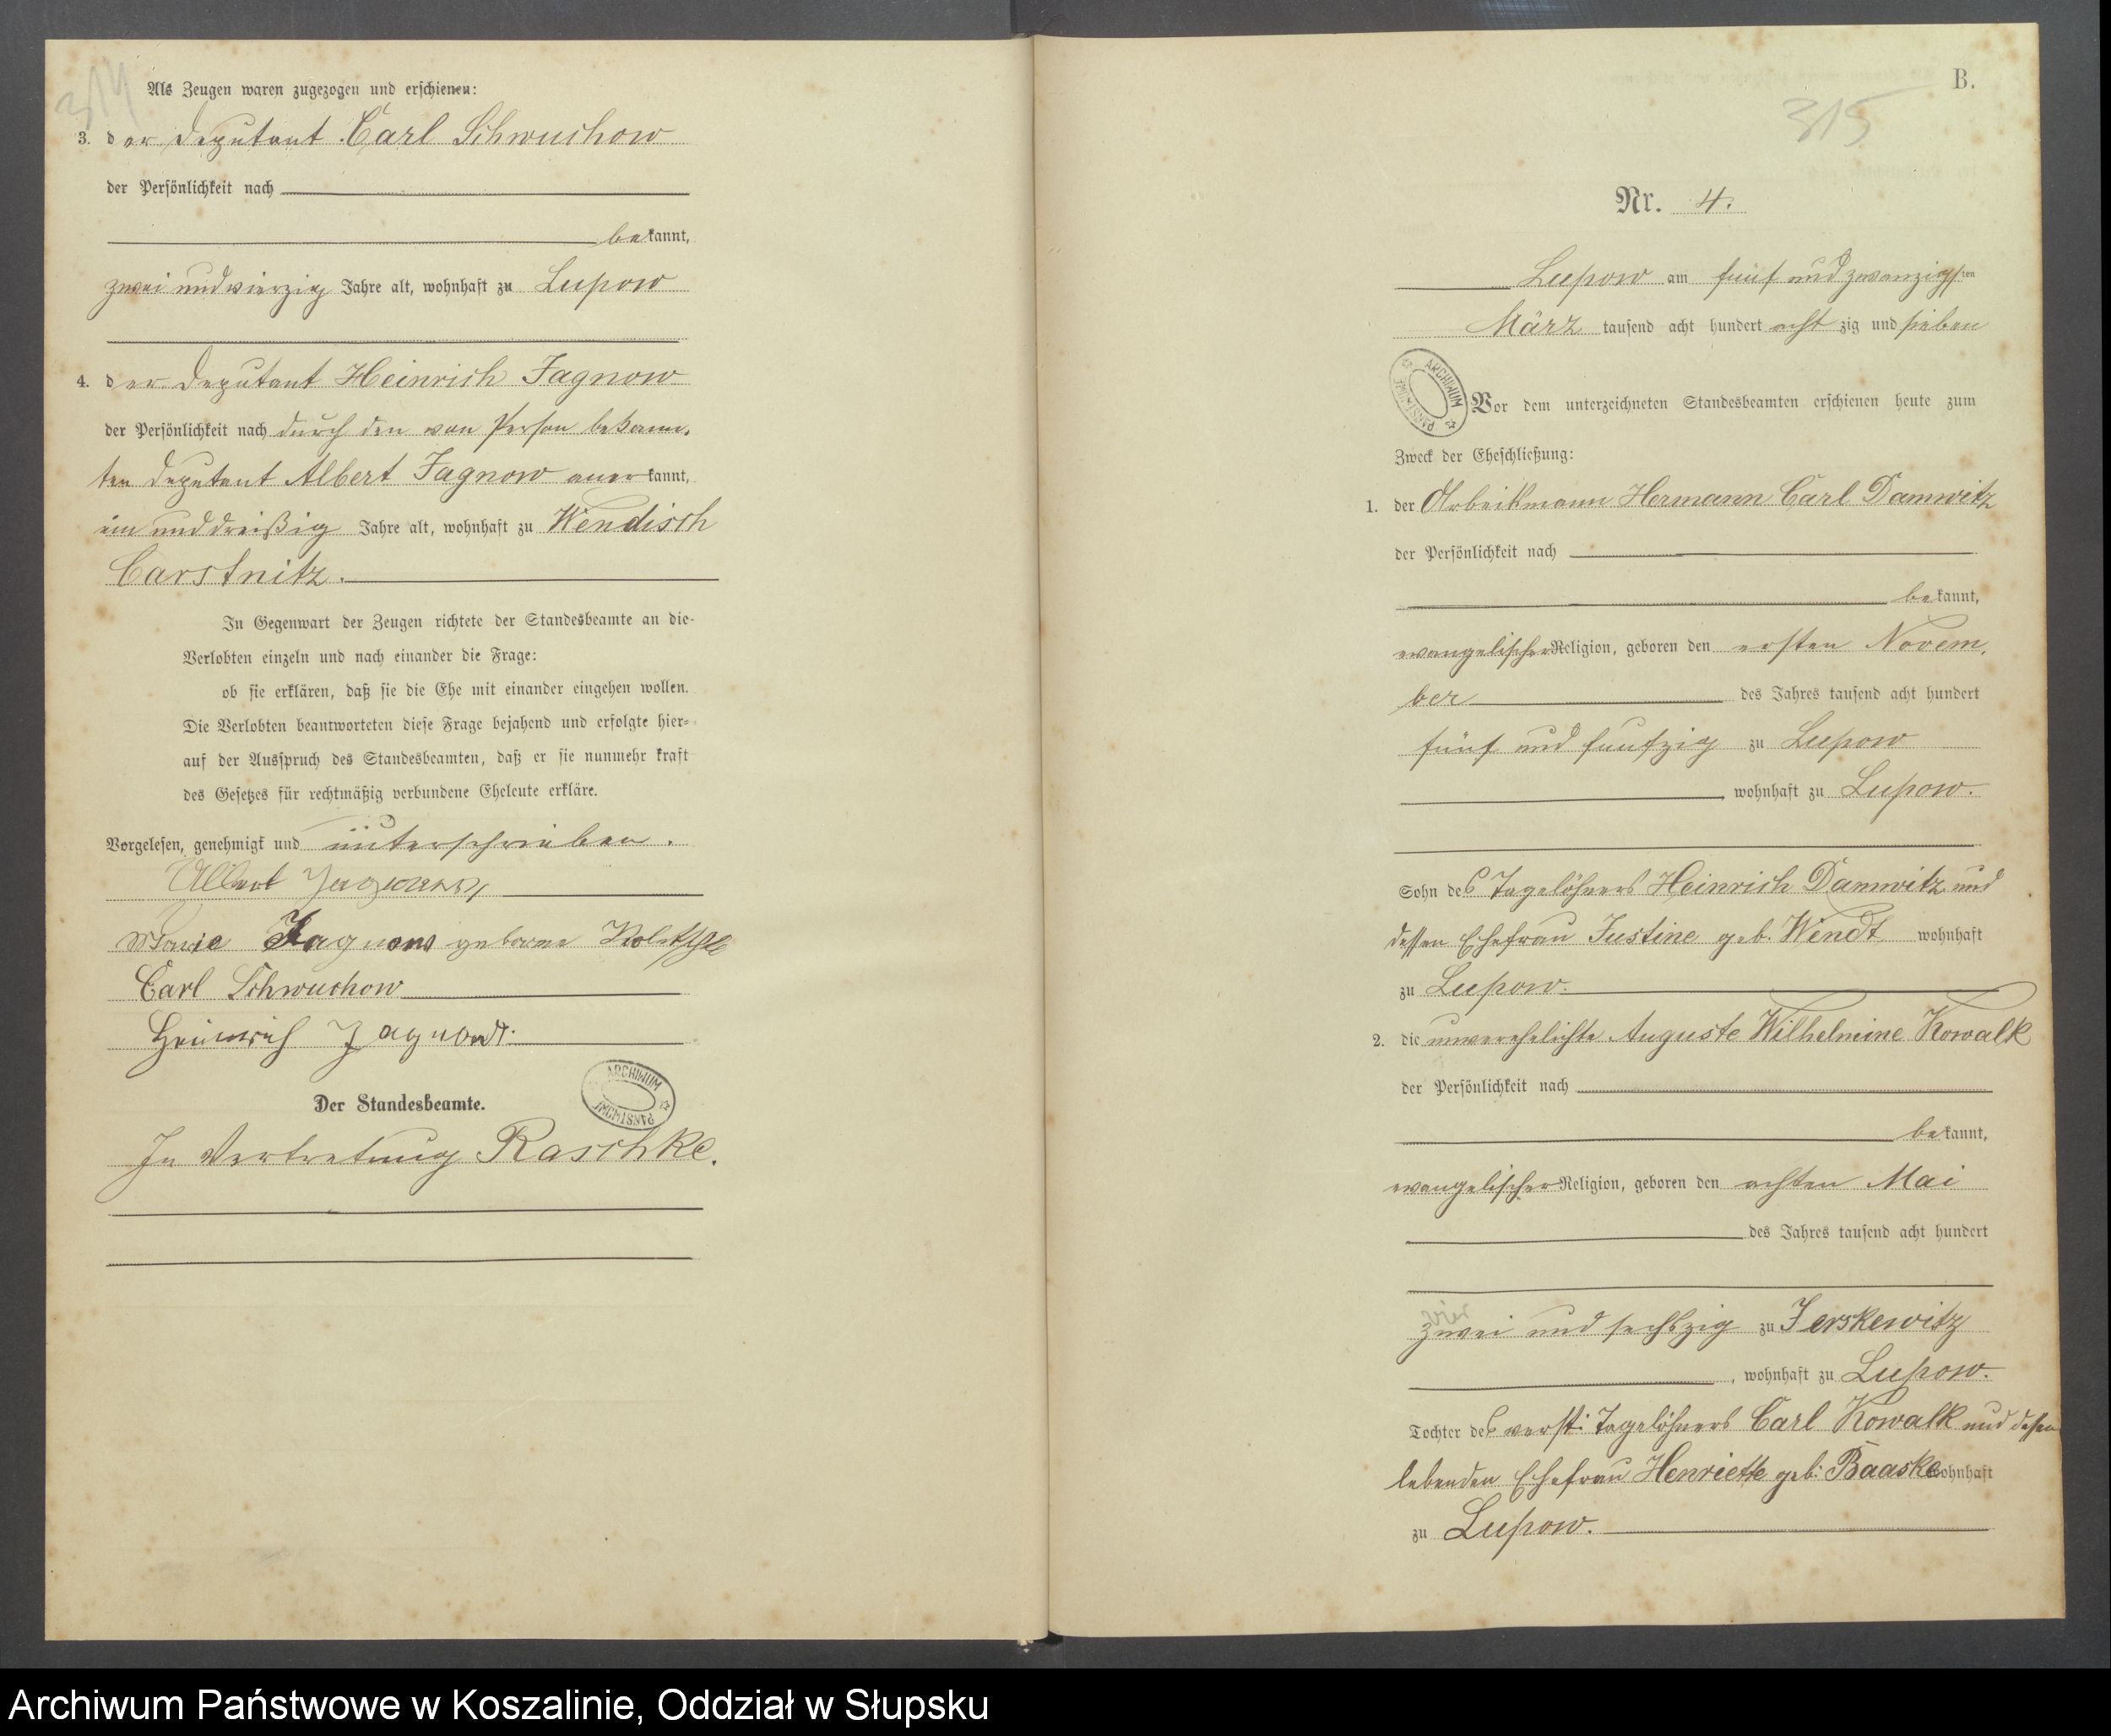 314
Als Zeugen waren zugezogen und erschienen:
3. der Deputant Carl Schwuchow
der Persönlichkeit nach
bekannt,
zwei und vierzig Jahre alt, wohnhaft zu Lupow
4. der Deputant Heinrich Jagnow
der Persönlichkeit nach durch den von Person bekann-
ten Deputant Albert Jagnow anerkannt,
ein und dreißig Jahre alt, wohnhaft zu Wendisch
Carstnitz.
In Gegenwart der Zeugen richtete der Standesbeamte an die
Verlobten einzeln und nach einander die Frage:
ob sie erklären, daß sie die Ehe mit einander eingehen wollen.
Die Verlobten beantworteten diese Frage bejahend und erfolgte hier-
auf der Ausspruch des Standesbeamten, daß er sie nunmehr kraft
des Gesetzes für rechtmäßig verbundene Eheleute erkläre.
Vorgelesen, genehmigt und unterschrieben.
Albert Jagnow
Marie Jagnow geborne
Carl Schwuchow
Heinrich
Der Standesbeamte.
In Vertretung Raschke.
ARCHIWUM PAŃSTWOWE
B.
315
Nr. 4.
Lupow am fünf und zwanzigsten
März tausend acht hundert achtzig und sieben
ARCHIWUM PAŃSTWOWE
Vor dem unterzeichneten Standesbeamten erschienen heute zum
Zweck der Eheschließung:
1. der Arbeitsmann Hermann Carl Damwitz
der Persönlichkeit nach
bekannt,
evangelischer Religion, geboren den ersten Novem-
ber des Jahres tausend acht hundert
fünf und funfzig zu Lupow
, wohnhaft zu Lupow.
Sohn des Tagelöhners Heinrich Damwitz und
dessen Ehefrau Justine geb. Wendt wohnhaft
zu Lupow.
2. die unverehelichte Auguste Wilhelmine Kowalk
der Persönlichkeit nach
bekannt,
evangelischer Religion, geboren den achten Mai
des Jahres tausend acht hundert
vier
zwei und sechszig zu Jerskewitz
, wohnhaft zu Lupow.
Tochter des verst: Tagelöhners Carl Kowalk und dessen
lebenden Ehefrau Henriette geb: Baaske wohnhaft
zu Lupow.
Archiwum Państwowe w Koszalinie, Oddział w Słupsku